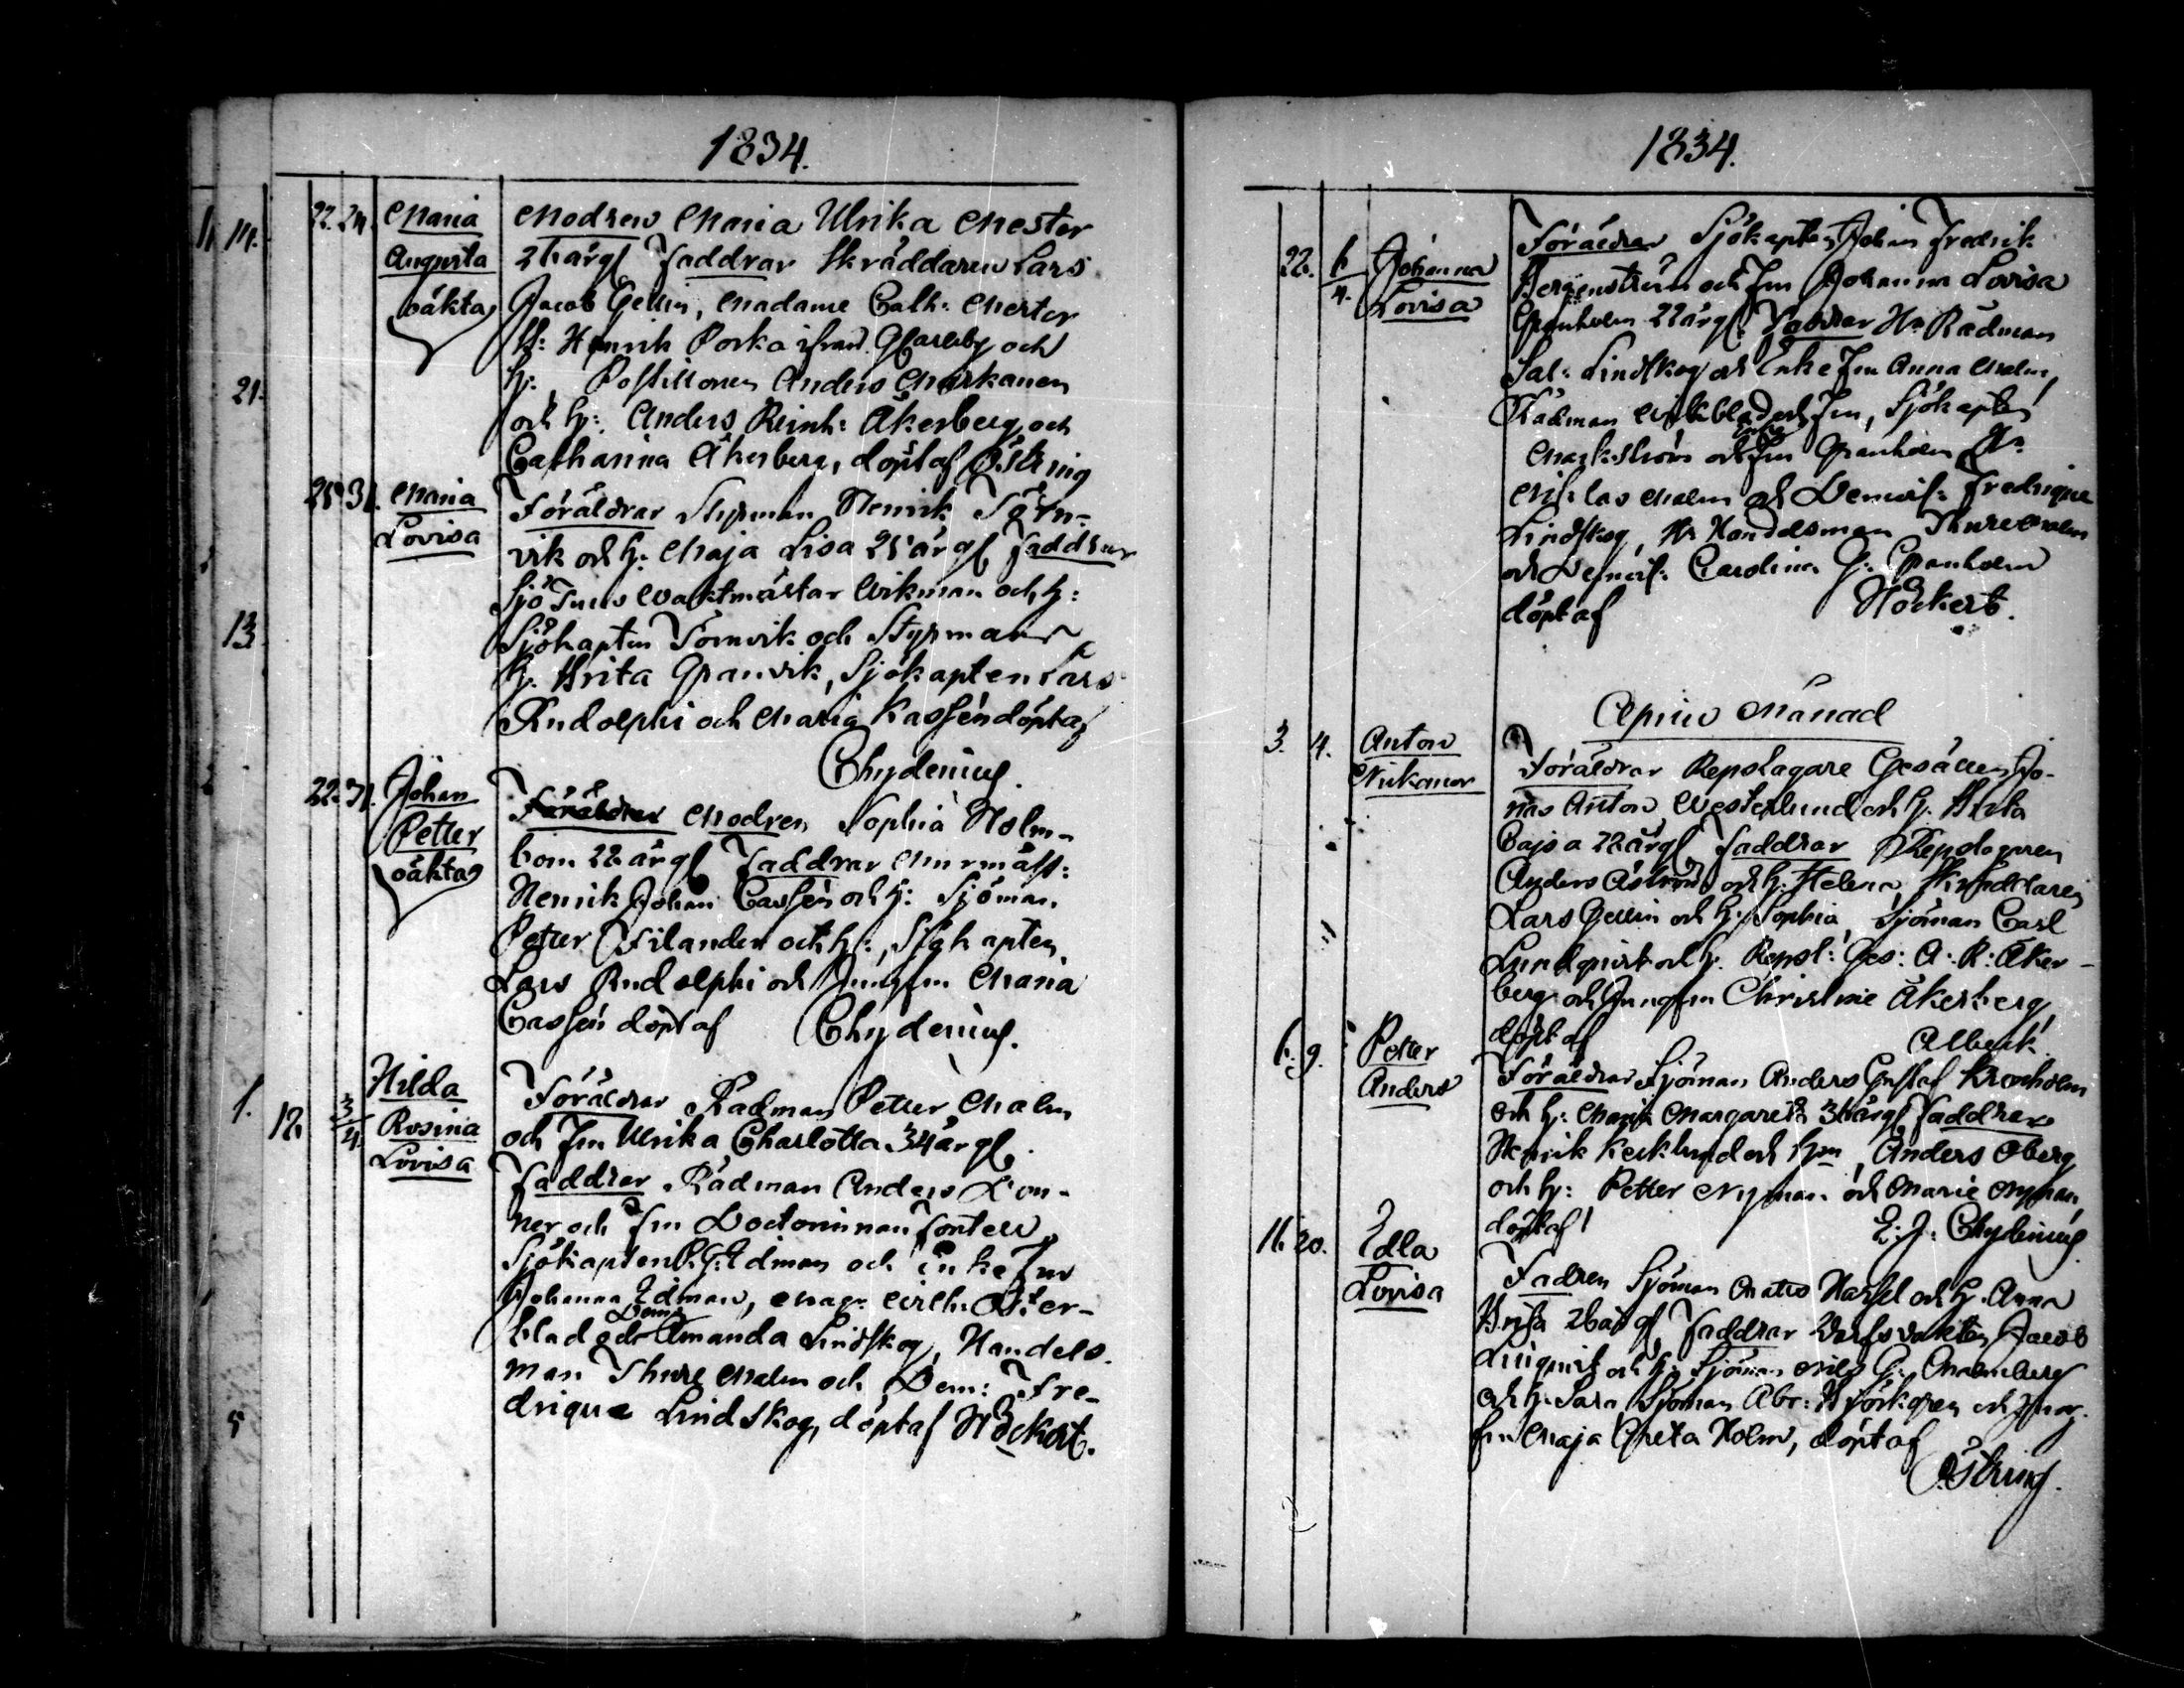 1834.
22. 24. Maria Modren Maria Ulrika Mester
Augusta årgl Faddrar Skräddaren Lars
oäkta Jacob Gellin, Madame Cath: Mester
H: Henrik Porka ifrån och
h: Postillonen Anders Markanen
och h: Anders Reinh: Åkerberg och
Catharina Åkerberg, döpt af Östring
25 31. Maria Föräldrar Styrman Henrik Törn-
Lovisa vik och h: Maja Lisa 25 årgl Faddrar
Sjö Tulls Waktmästar Wikman och h:
Sjökapten Törnvik och Styrman
h. Brita Granvik, Sjökapten Lars
Rudolphi och Maria Kassén döpt af
Chydenius.
22. 31. Johan Modren Sophia Holm-
Petter bom 22 årgl Faddrar Murmäst:
oäkta Henrik Johan Cassén och h: Sjöman
Petter Filander och h:, Sjökapten
Lars Rudolphi och Jungfru Maria
Cassén döpt af Chydenius.
12. 3/4. Hilda Föräldrar Rådman Petter Malm
Rosina och Fru Ulrika Charlotta 34 årgl.
Lovisa Faddrar Rådman Anders Don-
ner och Fru Doctorinnan Forteli
Sjökapten P. G. Edman och Enke Fru
Johanna Edman, Mag: Wilh: Öster-
blad och Dem: Amanda Lindskog, Handels-
man Thure Malm och Dem: Fre-
drique Lindskog, döpt af Höckert.
1834.
22. 6/4. Johanna Föräldrar Sjökapten Johan Fredrik
Lovisa Bergenström och Fru Johanna Lovisa
Granholm 22 årgl. Faddrar Hr Rådman
Sal: Lindskog och Enke Fru Anna Malm,
Rådman och Fru, Sjökapten
Markström och Enke Fru Granholm Hr
Nicklas Malm och Demois: Fredrique
Lindskog, Hr Handelsman Thure Malm
och Demois: Carolina G: Granholm
döpt af Höckert.
April Månad
3. 4. Anton Föräldrar Repslagare Gesällen Jo-
Nikanor nas Anton Westerlund och h. Brita
Cajsa 22 årgl Faddrar Repslagaren
Anders Åström och h: Helena, Skräddaren
Lars Gellin och h: Sophia, Sjöman Carl
Lundqvist och h. Repsl: Ges: A: R: Åker-
berg och Jungfru Christine Åkerberg,
döpt af Alberk
6. 9. Petter Föräldrar Sjöman Anders Gustaf Kronholm
Anders och h: Maria Margareta 36 årgl Faddrar
Henrik Kecklund och hm, Anders Öberg
och h: Petter Nyman och Marie Nyman,
döpt af E. J: Chydenius
16 20. Edla Fadren Sjöman Matts Hassel och h. Anna
Lovisa Brita 26 årgl, Faddrar Jacob
Lingvist och h: Sjöman Nils G: Malmberg
och h: Sara, Sjöman Abr: Björkgren och Jung-
fru Maja Greta Holm, döpt af
Östring.